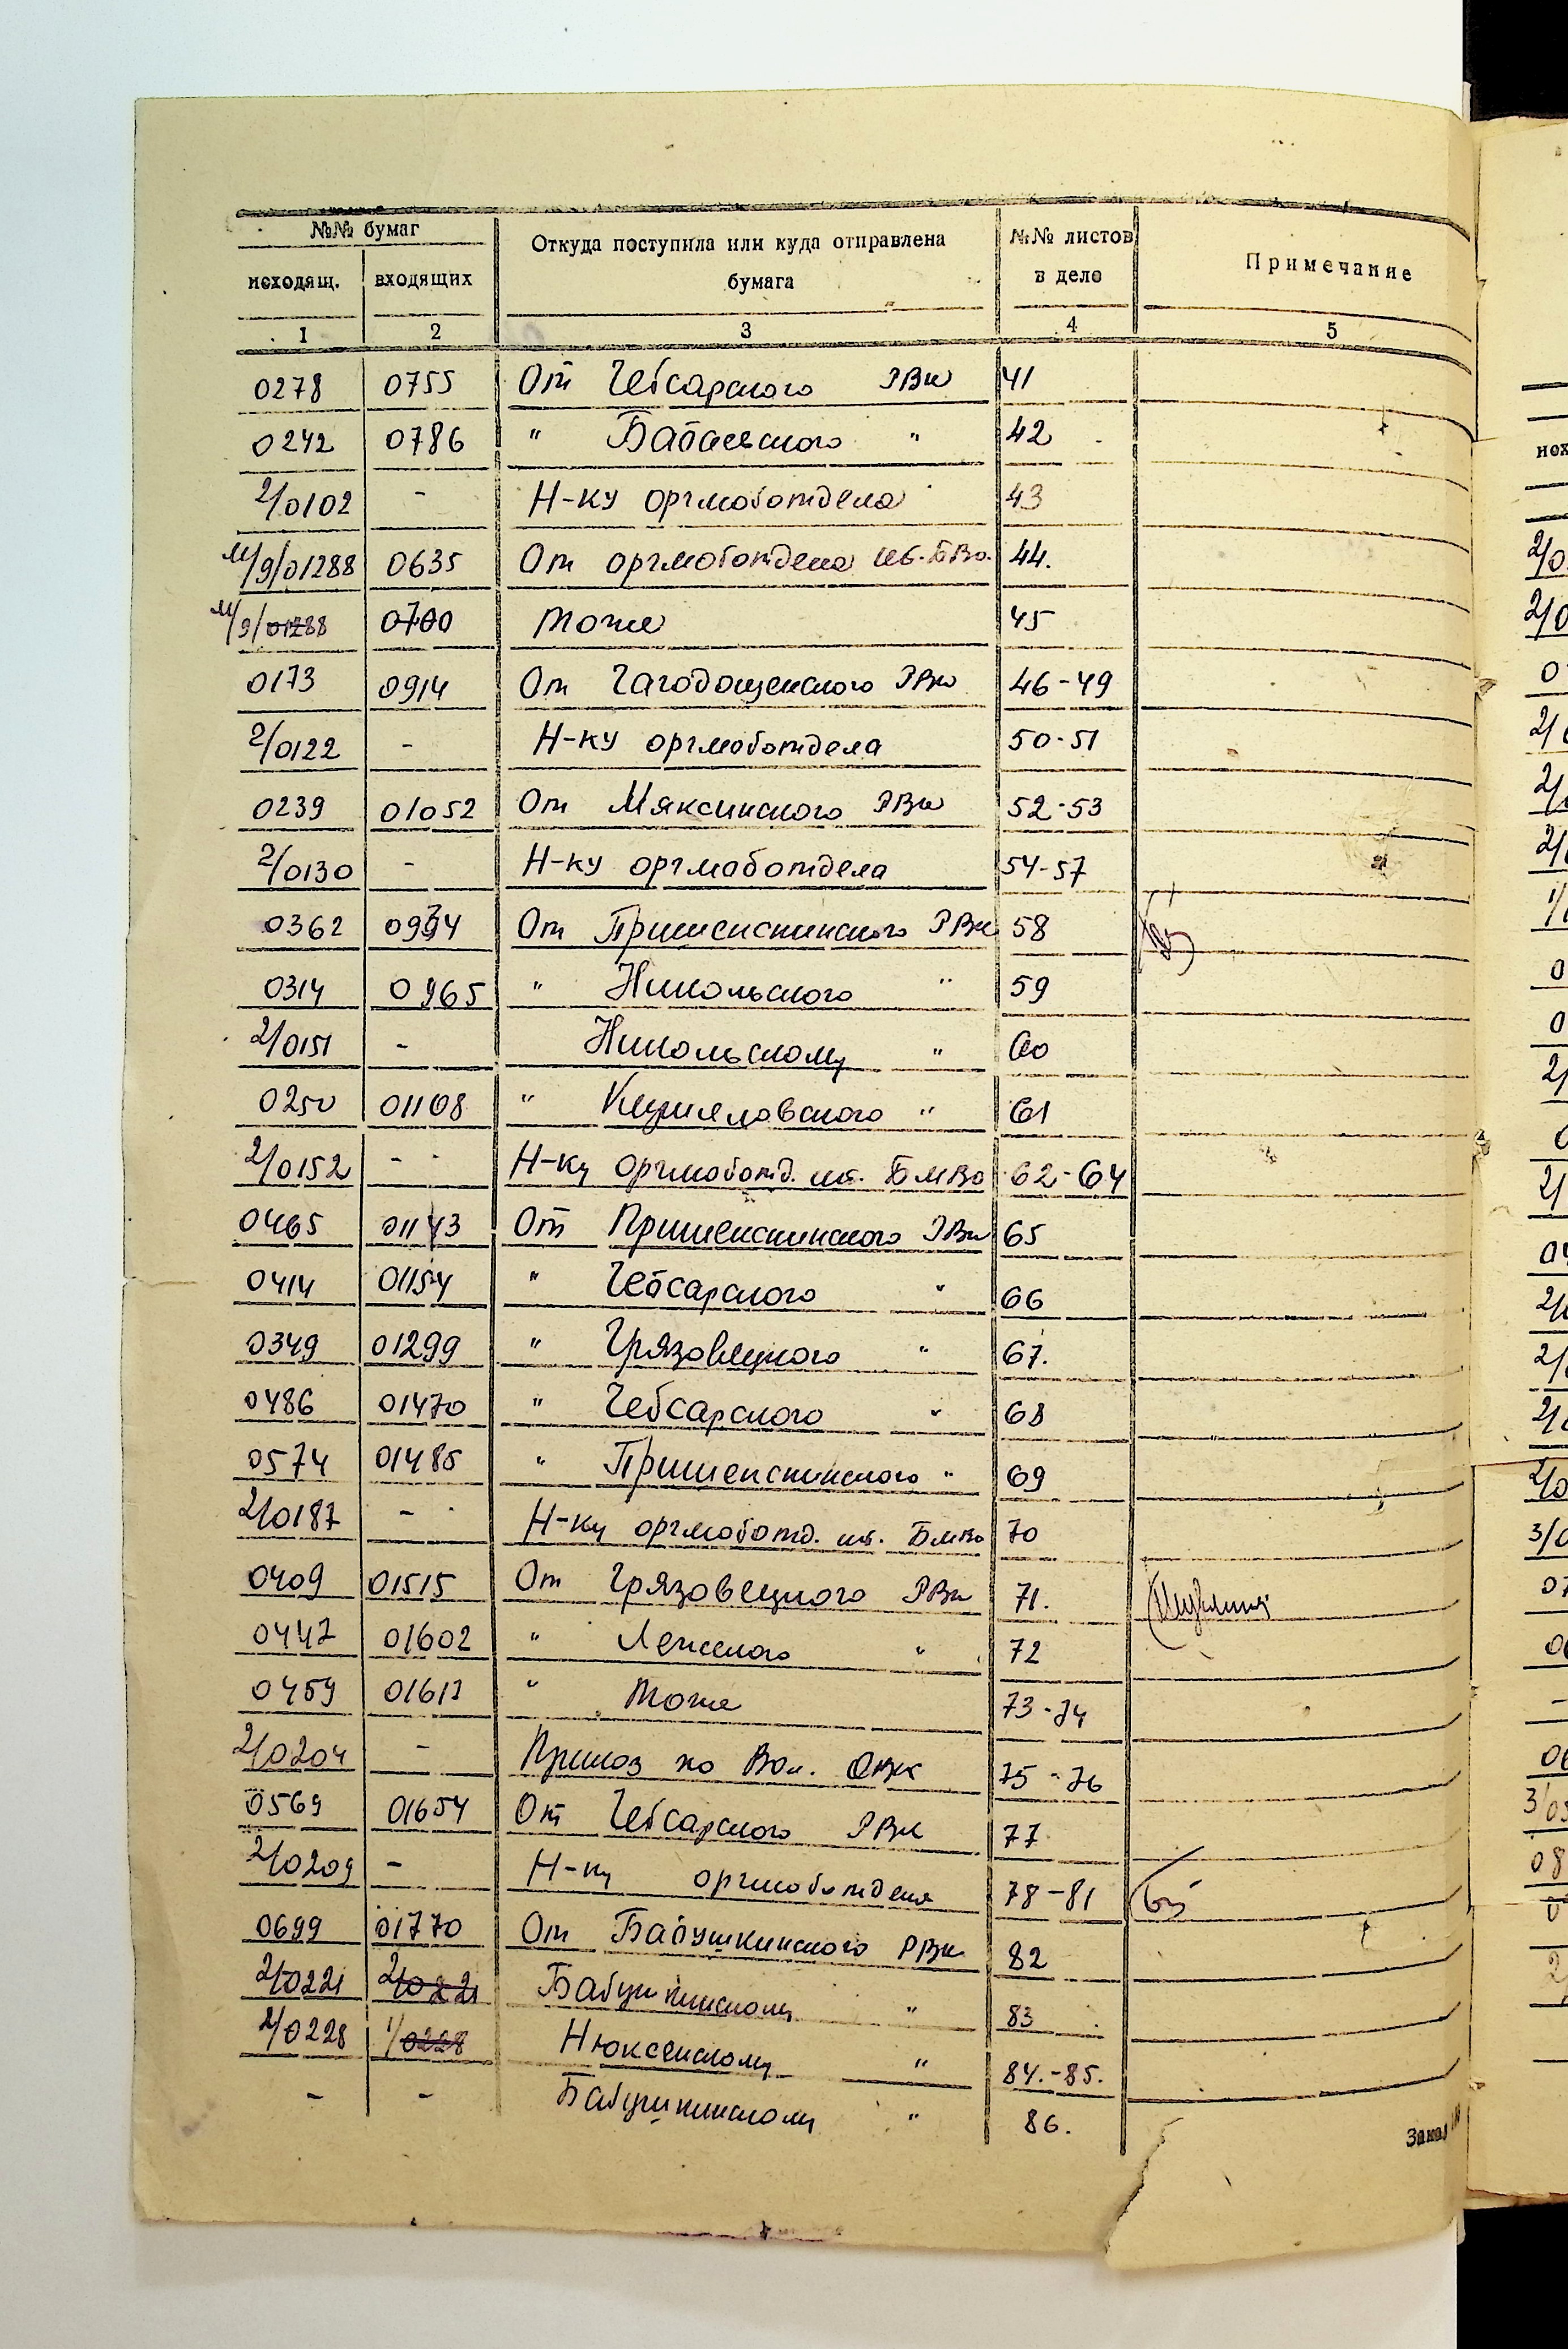 №№ бумаг Откуда поступила или куда отправлена №№ листов Примечание
исходящ. входящих бумага в деле
1 2 3 4 5
0278 0755 От Чебсарского РВК 41
0242 0786 " Бабаевского " 42
2/0102 - Н-ку оргмоботдела 43
м/9/01288 0635 От оргмоботдела шб. БВО. 44.
м/9/01288 0700 Тоже 45
0173 0914 От Чагодощенского РВК 46-49
2/0122 - Н-ку оргмоботдела 50-51
0239 01052 От Мяксинского РВК 52-53
2/0130 - Н-ку оргмоботдела 54-57
0362 От Пришекснинского РВК 58
0314 0965 " Никольского " 59
2/0151 - Никольскому " 60
0250 01108 " " 61
2/0152 - - Н-ку оргмоботд. шб. БМВО 62-64
0465 01143 От Пришекснинского РВК 65
0414 01154 " Чебсарского " 66
0349 01299 " Грязовецкого " 67.
0486 01470 " Чебсарского " 68
0574 01485 " Пришекснинского " 69
2/0187 - Н-ку оргмоботд. шб. БМВО 70
0409 01515 От Грязовецкого РВК 71.
0447 01602 " Лежского " 72
0459 01617 " Тоже 73-74
2/0204 - Приказ по Вол. ОВК 75-76
0569 01654 От Чебсарского РВК 77
2/0209 - Н-ку оргмоботдела 78-81
0699 01770 От Бабушкинского РВК 82
2/0221 2/0221 Бабушкинскому " 83
2/0228 1/0228 Нюксенскому " 84.-85.
- - Бабушкинскому " 86.
Заказ
нсх